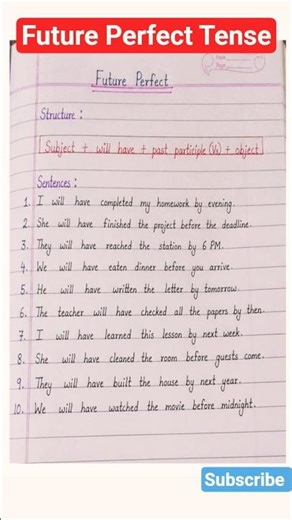 Future Perfect Tense
Date
Page
Future Perfect
Structure :
Subject + will have + past participle (V₃) + object
Sentences :
1. I will have completed my homework by evening.
2. She will have finished the project before the deadline.
3. They will have reached the station by 6 PM.
4. We will have eaten dinner before you arrive.
5. He will have written the letter by tomorrow.
6. The teacher will have checked all the papers by then.
7. I will have learned this lesson by next week.
8. She will have cleaned the room before guests come.
9. They will have built the house by next year.
10. We will have watched the movie before midnight.
Subscribe